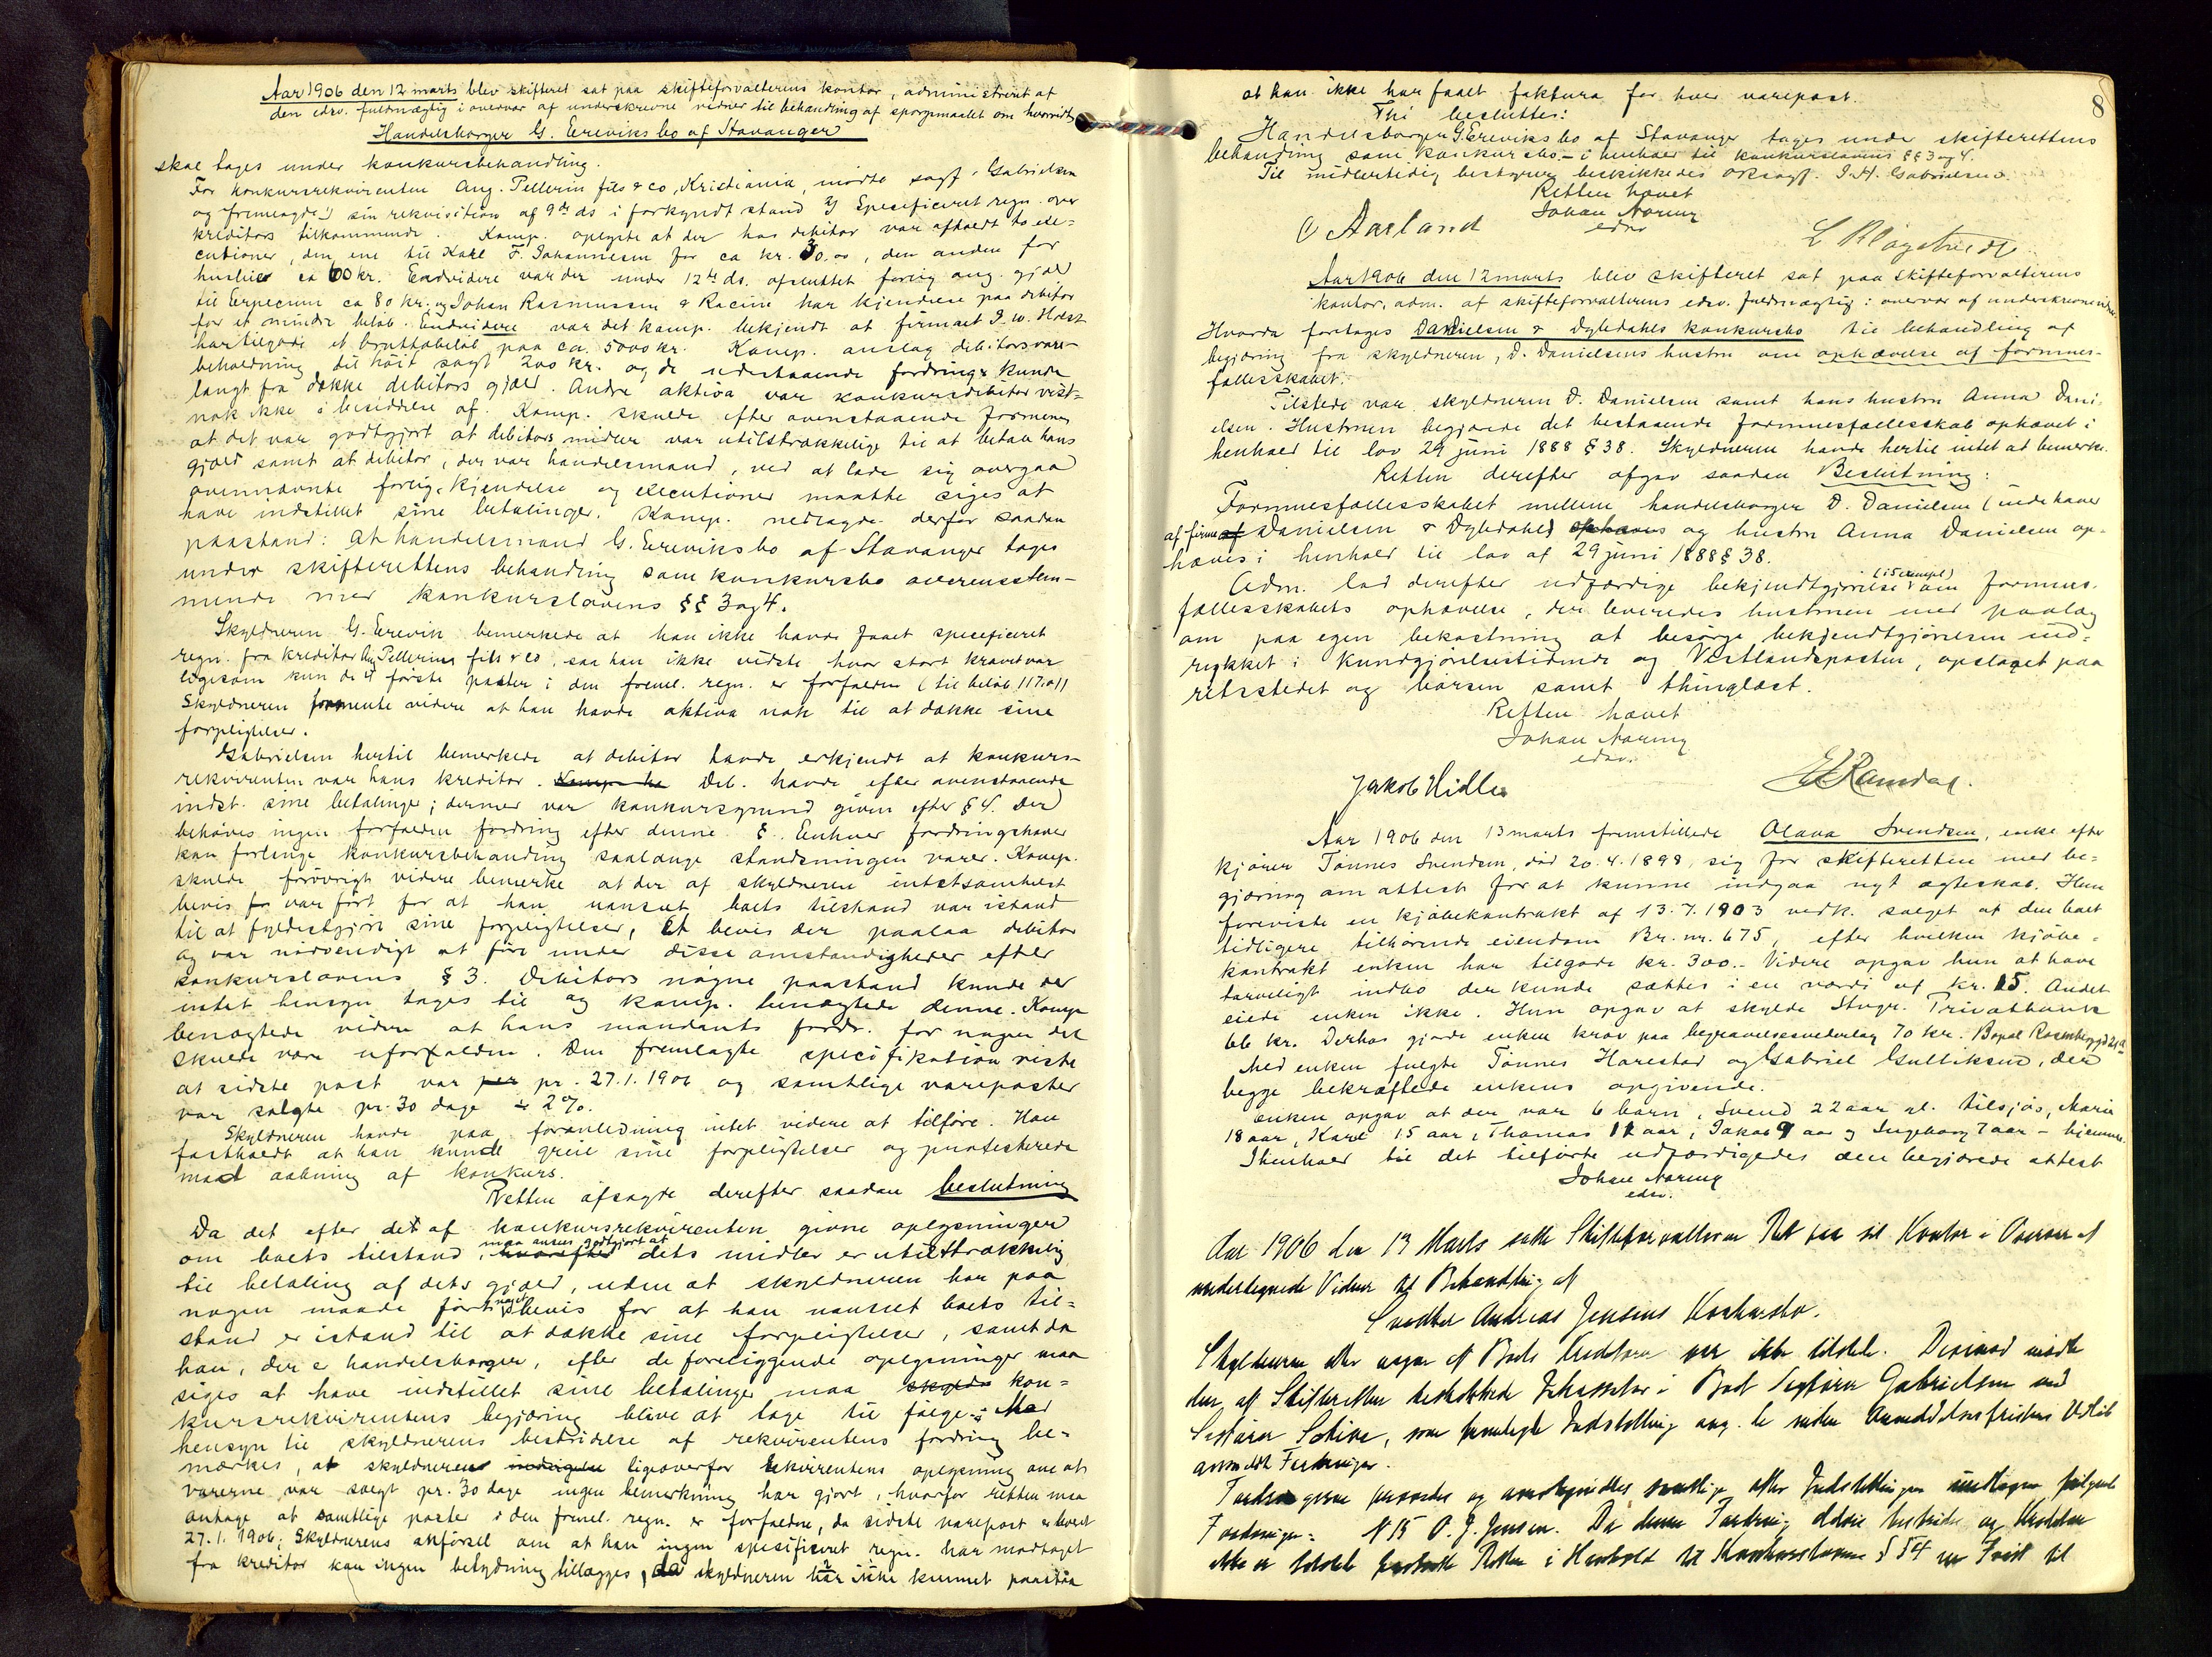 Aar 1906 den 12 marts blev skifteret sat paa skifteforvalterens kontor, administreret af
den edsv. fuldmægtig i overvær af underskrevne vidner til behandling af spørgsmaalet om hvorvidt
Handelsborger G. Ereviks bo af Stavanger
skal tages under konkursbehandling.
For konkursrekvirenten Aug. Pellerin fils & co, Kristiania, mødte sagf. Gabrielsen
og fremlagde 1) sin rekvisition af 9de ds i forkyndt stand 2) Specificeret regn. over
kreditors tilkommende. Komp. oplyste at der hos debitor var afholdt to exe-
cutioner, den ene til Karl F. Johannesen for ca kr. 30.00, den anden for
husleie ca 60 kr. Endvidere var der under 12te ds. afsluttet forlig ang. gjæld
til Erpecum ca 80 kr. og Johan Rasmussen & Racine har kjendelse paa debitor
for et mindre beløb. Endvidere var det komp. bekjendt at firmaet I. W. Holst
har tilgode et bruttobeløb paa ca. 5000 kr. Komp. anslog debitors vare-
beholdning til høit sagt 200 kr. og de udestaaende fordringer kunde
langt fra dække debitors gjæld. Andre aktiva var konkursdebitor vist-
nok ikke i besiddelse af. Komp. skulde efter ovenstaaende formene
at det var godtgjort at debitors midler var utilstrækkelige til at betale hans
gjæld samt at debitor, der var handelsmand, ved at lade sig overgaa
ovennævnte forlig, kjendelse og executioner maatte siges at
have indstillet sine betalinger. Komp. nedlagde derfor saadan
paastand: At handelsmand G. Ereviks bo af Stavanger tages
under skifterettens behandling som konkursbo overensstem-
mende med konkurslovens §§ 3 og 4.
Skyldneren G. Erevik bemerkede at han ikke havde faaet specificeret
regn. fra kreditor Aug Pellerins fils & co, saa han ikke vidste hvor stort kravet var
ligesom kun de første poster i den freml. regn. er forfalden (til beløb 117.01)
Skyldneren formente videre at han havde aktiva nok til at dække sine
forpligtelser.
Gabrielsen hertil bemerkede at debitor havde erkjendt at konkurs-
rekvirenten var hans kreditor. Komp. ha Deb. havde efter ovenstaaende
indst. sine betalinger; dermed var konkursgrund given efter § 4. Der
behøves ingen forfalden fordring efter denne §. Enhver fordringshaver
kan forlange konkursbehandling saalænge standsningen varer. Komp.
skulde forøvrigt videre bemerke at der af skyldneren intetsomhelst
bevis for var ført for at han uanset boets tilstand var istand
til at fyldestgjøre sine forpligtelser, Et bevis der paalaa debitor
og var nødvendigt at føre under disse omstændigheder efter
konkurslovens § 3. Debitors nøgne paastand kunde der
intet hensyn tages til og komp. benægtede denne. Komp
benægtede videre at hans mandants fordr. for nogen del
skulde være uforfalden. Den fremlagte specifikation viste
at sidste post var per pr. 27.1.1906 og samtlige vareposter
var solgte pr. 30 dage ÷ 2%.
Skyldneren havde paa foranledning intet videre at tilføre. Han
fastholdt at han kunde greie sine forpligtelser og protesterede
mod aabning af konkurs.
Retten afsagde derefter saadan beslutning
Da det efter det af konkursrekvirenten givne oplysninger
om boets tilstand, hvorefter maa anses godtgjort at dets midler er utilstrækkelig
til betaling af dets gjæld, uden at skyldneren har paa
nogen maade ført noget bevis for at han uanset boets til-
stand er istand til at dække sine forpligtelser, samt da
han, der er handelsborger, efter de foreliggende oplysninger maa
siges at have indstillet sine betalinger maa skylds kon-
kursrekvirentens begjæring blive at tage til følge. Med
hensyn til skyldnerens bestridelse af rekvirentens fordring be-
mærkes, at skyldneren ligeoverfor rekvirentens oplysning om at
varerne var solgt pr. 30 dage ingen bemerkning har gjort, hvorfor retten maa
antage at samtlige poster i den freml. regn. er forfaldne, da sidste varepost er levert
27.1.1906. Skyldnerens anførsel om at han ingen specificeret regn. har modtaget
fra kreditor kan ingen betydning tillægges, da skyldneren har ikke kunnet paastaa
8
at han ikke har faaet faktura for hver varepost.
Thi besluttes:
Handelsborger G. Ereviks bo af Stavanger tages under skifterettens
behandling som konkursbo i henhold til konkurslovens §§ 3 og 4.
Til midlertidig bestyrer beskikkedes oksagf. I. H. Gabrielsen.
Retten hævet
Johan Noring
edsv
O Aarland
Aar 1906 den 12 marts blev skifteret sat paa skifteforvalterens
kontor, adm. af skifteforvalterens edsv. fuldmægtig i overvær af underskrevne vidner.
Hvorda foretoges Danielsen & Dybdahls konkursbo til behandling af
begjæring fra skyldneren, D. Danielsens hustru om ophævelse af formues-
fællesskabet.
Tilstede var skyldneren D. Danielsen samt hans hustru Anna Dani-
elsen. Hustruen begjærede det bestaaende formuesfællesskab ophævet i
henhold til lov 29 juni 1888 § 38. Skyldneren havde hertil intet at bemerke.
Retten derefter afgav saadan Beslutning:
Formuesfællesskabet mellem handelsborger D. Danielsen (indehaver
af firma af Danielsen & Dybdahl) ophæves og hustru Anna Danielsen op-
hæves i henhold til lov af 29 juni 1888 § 38.
Adm. lod derefter udfærdige bekjendtgjørelse (i 5 exempl) om formues-
fællesskabets ophævelse, der leveredes hustruen med paalæg
om paa egen bekostning at besørge bekjendtgjørelsen ind-
rykket i Kundgjørelsestidende og Vestlandsposten, opslaget paa
retsstedet og børsen samt thinglæst.
Retten hævet
Johan Noring
edsv.
Jakob Hidle
E Ramdal.
Aar 1906 den 13 marts fremstillede Olava Svendsen, enke efter
kjører Tønnes Svendsen, død 20.4.1898, sig for skifteretten med be-
gjæring om attest for at kunne indgaa nyt ægteskab. Hun
foreviste en kjøbekontrakt af 13.7.1903 vedk. salget af den boet
tidligere tilhørende eiendom Br. nr. 675, efter hvilken kjøbe-
kontrakt enken har tilgode kr. 300.- Videre opgav hun at have
tarveligt indbo der kunde sættes i en værdi af kr. 15. Andet
eiede enken ikke. Hun opgav at skylde Stvgr. Privatbank
66 kr. Derhos gjorde enken krav paa begravelsesvederlag 70 kr. Bopæl Rosenberggd 21a
Med enken fulgte Tønnes Harestad og Gabriel Gulliksen, der
begge bekræftede enkens opgivende.
Enken opgav at der var 6 børn, Svend 22 aar al. tilsjøs, Marie
18 aar, Karl 15 aar, Thomas 12 aar, Jakob 9 aar og Ingeborg 7 aar - hjemme.
I henhold til det tilførte udfærdigedes den begjærede attest
Johan Noring
edsv.
Aar 1906 den 13 Marts satte Skifteforvalteren Ret paa sit Kontor i Overvær af
undertegnede Vidner til Behandling af
Snedker Andreas Jensens Konkursbo.
Skyldneren eller nogen af Boets Kreditorer var ikke tilstede. Derimod mødte
den af Skifteretten beskikkede Inkassator i Boet Sagfører Gabrielsen ved
Sagfører Sølive, som fremlagte Indstilling ang. de inden Anmeldelsesfristens Udløb
anmeldte Fordringer.
Fordringerne prøvedes og anerkjendtes samtlige efter Indstillingen undtagen følgende
Fordringer: N 15 O. J. Jensen. Da denne Fordring bestrides og Kreditor
ikke er tilstede Retten i Henhold til Konkurslovens § 54 en Frist til